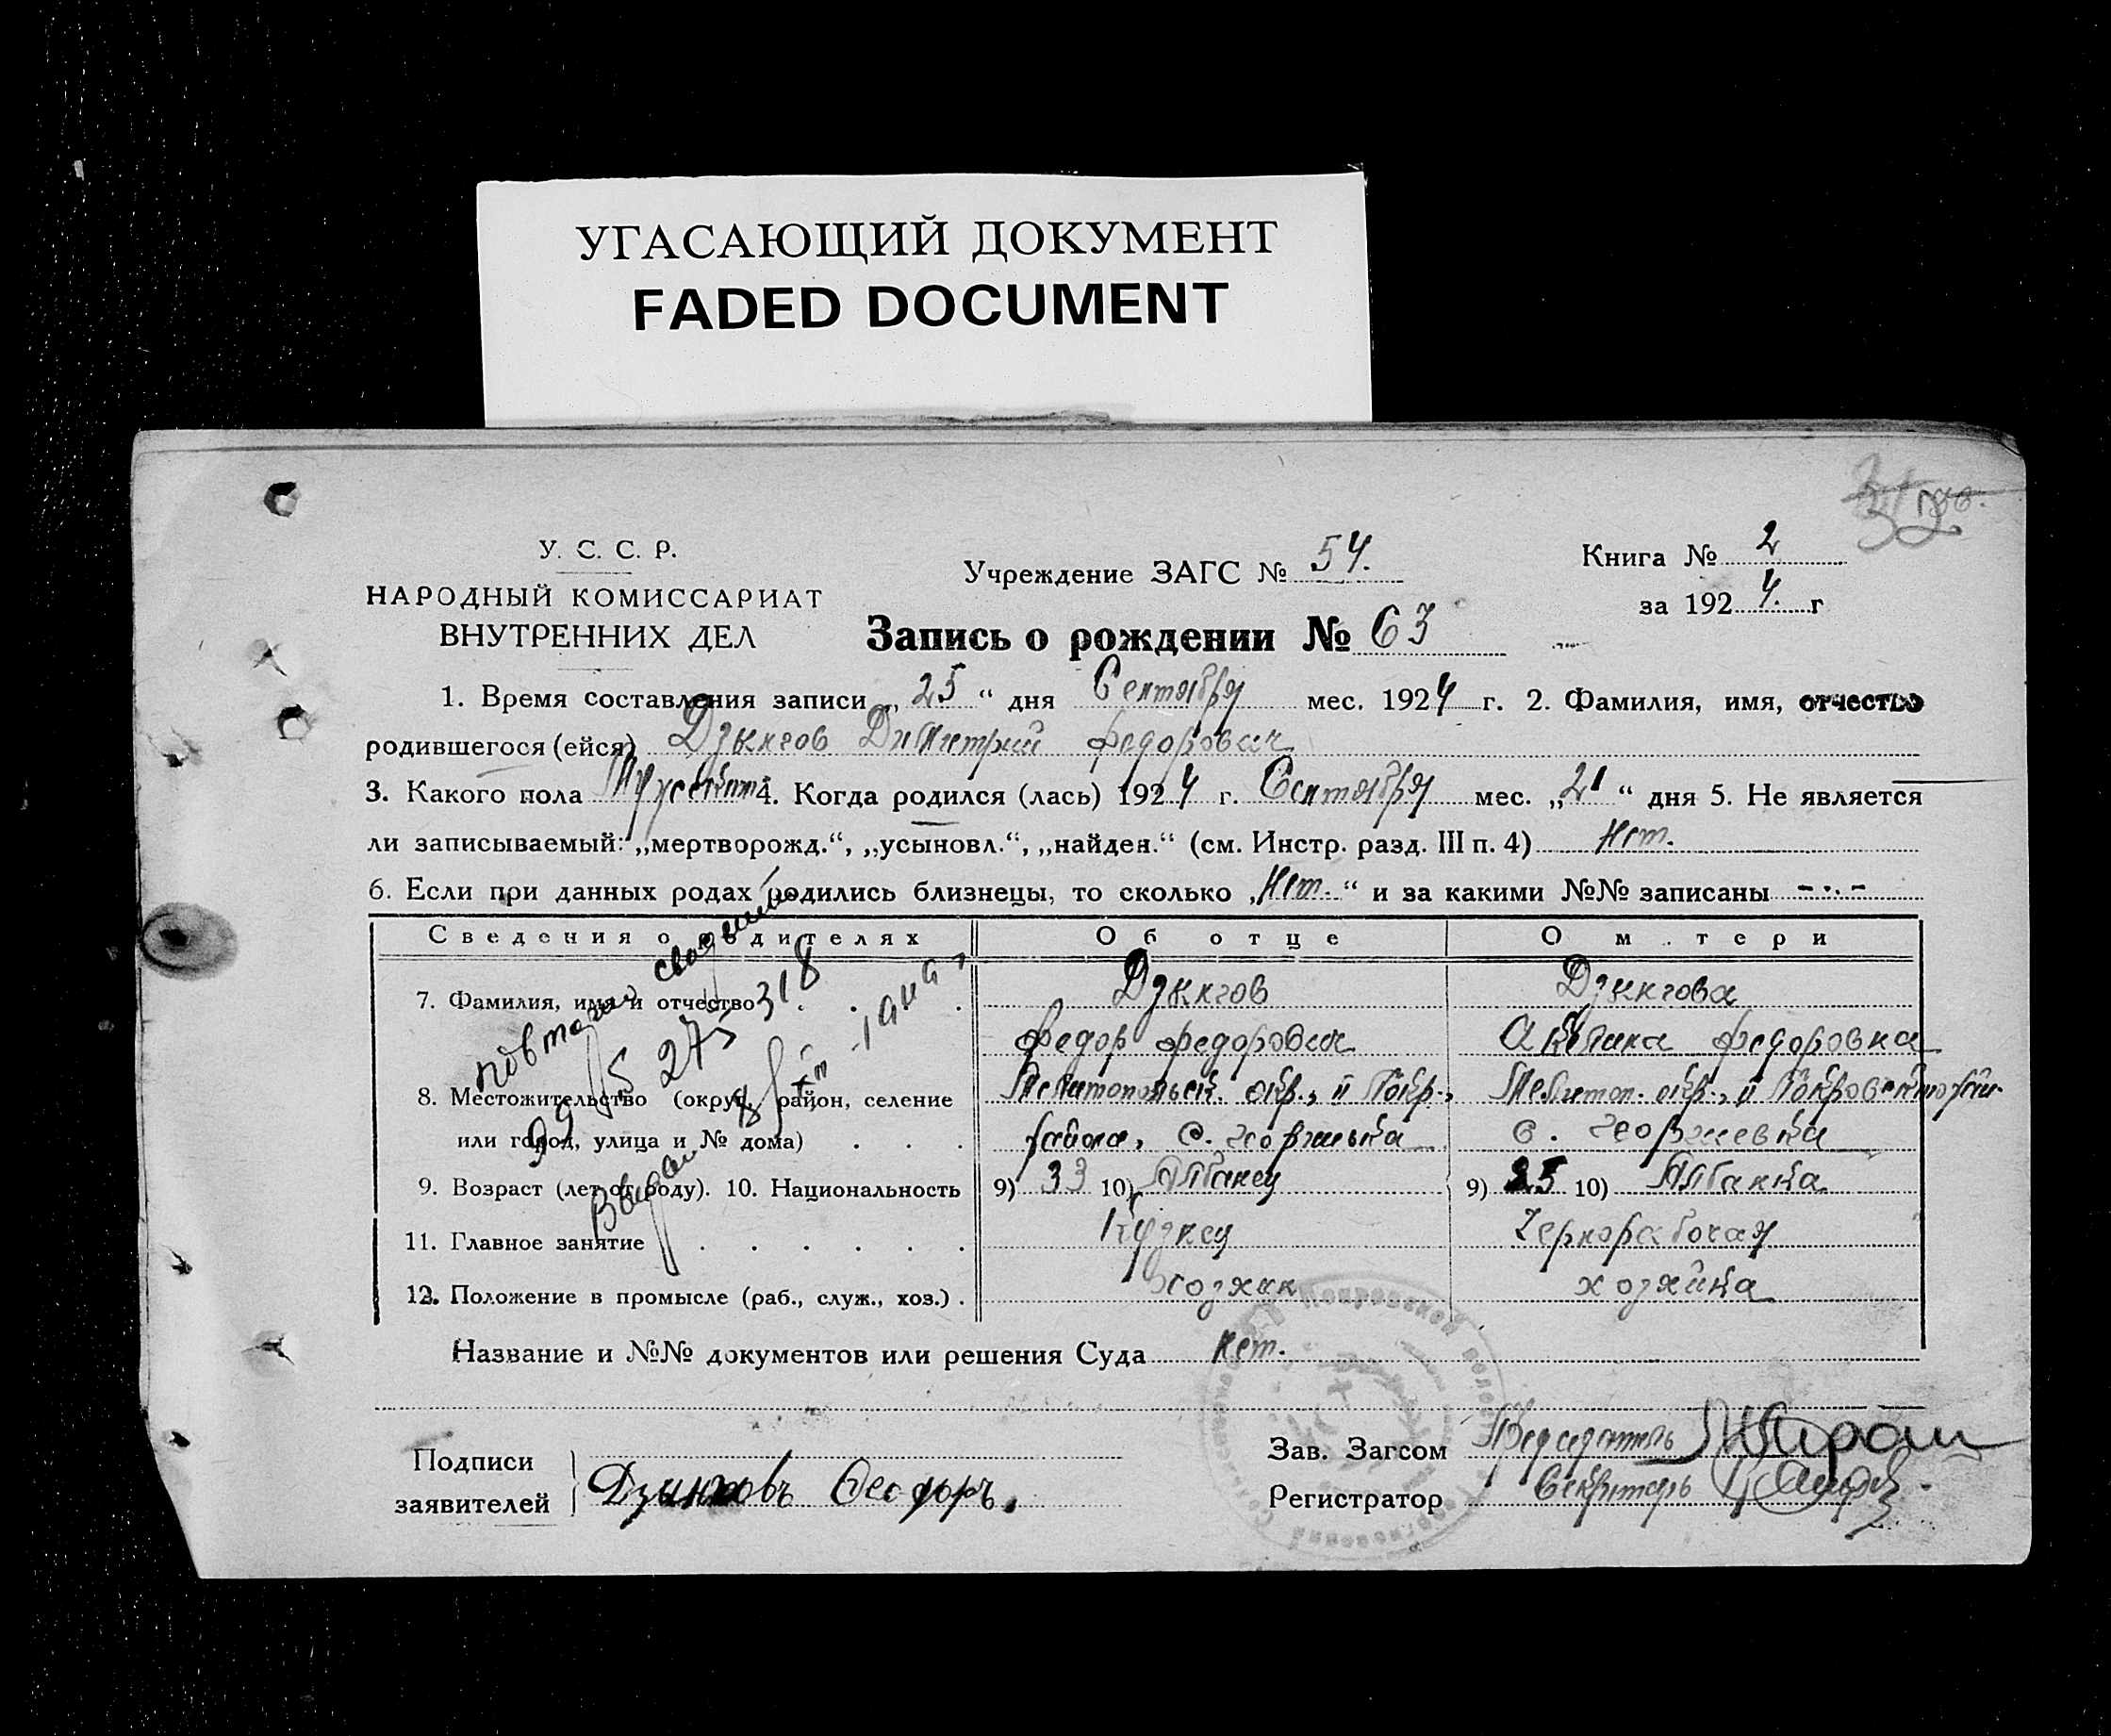 УГАСАЮЩИЙ ДОКУМЕНТ
FADED DOCUMENT
32
У. С. С. Р.
НАРОДНЫЙ КОМИССАРИАТ
ВНУТРЕННИХ ДЕЛ
Учреждение ЗАГС № 54.
Книга № 2
за 1924. г
Запись о рождении № 63
1. Время составления записи „25“ дня Сентября мес. 1924 г. 2. Фамилия, имя, отчество
родившегося (ейся) Дзынгов Димитрий Федорович
3. Какого пола Мужской 4. Когда родился (лась) 1924 г. Сентября мес. „21“ дня 5. Не является
ли записываемый: „мертворожд.“, „усыновл.“, „найден.“ (см. Инстр. разд. III п. 4) Нет.
6. Если при данных родах родились близнецы, то сколько „Нет.“ и за какими №№ записаны -..-
Сведения о родителях Об отце О матери
7. Фамилия, имя и отчество Дзынгов Дзынгова
Федор Федорович Федоровна
8. Местожительство (округ, район, селение Мелитопольск. окр., II Покр., Мелитоп. окр., II Покровского
или город, улица и № дома) района, с. Георгиевка с. Георгиевка
9. Возраст (лет от роду). 10. Национальность 9) 33 10) Албанец 9) 25 10) Албанка
11. Главное занятие Кузнец Чернорабочая
12. Положение в промысле (раб., служ., хоз.) Хозяин хозяйка
Выдан повторно
318
Название и №№ документов или решения Суда нет.
Подписи
заявителей Дзынговъ Феодоръ.
Зав. Загсом Председатель
Регистратор Секретарь